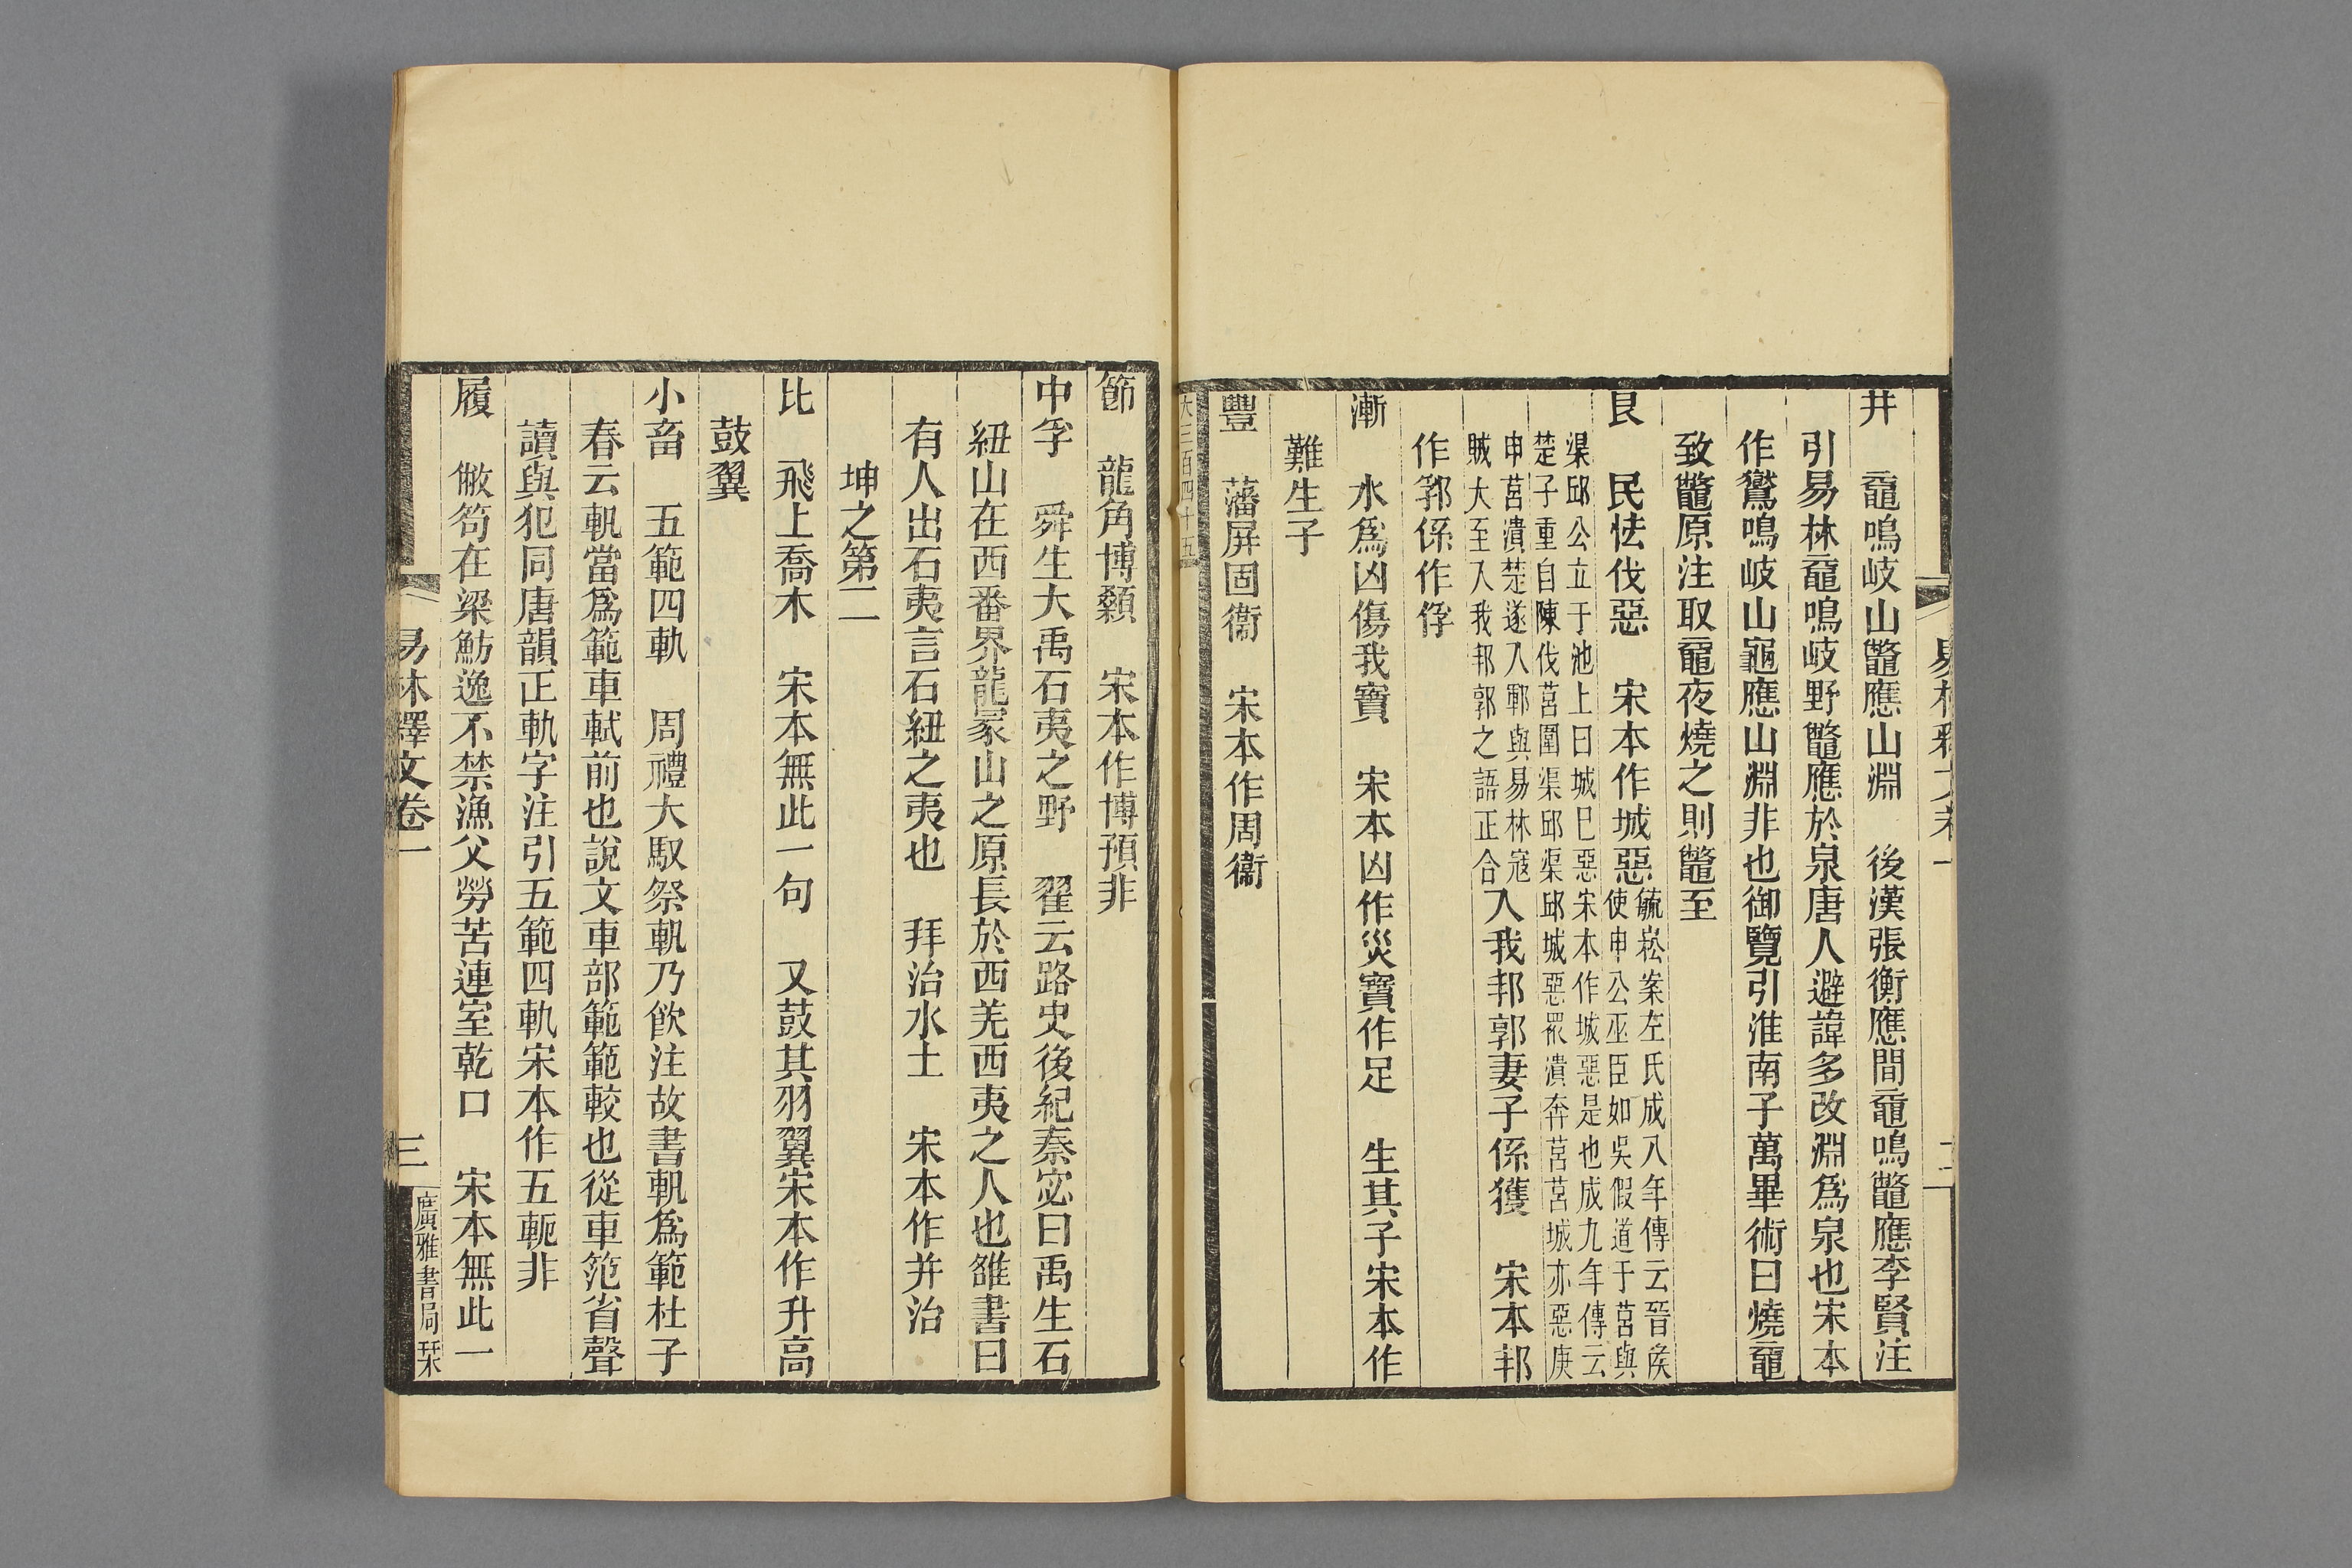 井　黿鳴岐山鼈應山淵　後漢張衡應間黿鳴鼈應李賢注
引易林黿鳴岐野鼈應於泉唐人避諱多改淵爲泉也宋本
作鸑鳴岐山龜應山淵非也御覽引淮南子萬畢術曰燒黿
致鼈原注取黿夜燒之則鼈至
艮　民怯伐惡　宋本作城惡毓崧案左氏成八年傳云晉侯
使申公巫臣如吳假道于莒與
渠邱公立于池上曰城已惡宋本作城惡是也成九年傳云
楚子重自陳伐莒圍渠邱渠邱城惡衆潰奔莒莒城亦惡庚
申莒潰楚遂入鄆與易林寇
賊大至入我郛郭之語正合入我郛郭妻子係獲　宋本郛
作郭係作俘
漸　水爲凶傷我寶　宋本凶作災寶作足　生其子宋本作
難生子
豐　藩屏固衞　宋本作周衞
大三百四十五
易林釋文卷一
二
節　龍角博顙　宋本作博預非
中孚　舜生大禹石夷之野　翟云路史後紀秦宓曰禹生石
紐山在西番界龍冢山之原長於西羌西夷之人也雒書曰
有人出石夷言石紐之夷也　拜治水土　宋本作并治
坤之第二
比　飛上喬木　宋本無此一句　又鼓其羽翼宋本作升高
鼓翼
小畜　五範四軌　周禮大馭祭軓乃飮注故書軓爲範杜子
春云軓當爲範車軾前也說文車部範範較也從車笵省聲
讀與犯同唐韻正軌字注引五範四軌宋本作五軛非
履　敝笱在梁魴逸不禁漁父勞苦連室乾口　宋本無此一
易林釋文卷一
三
廣雅書局栞